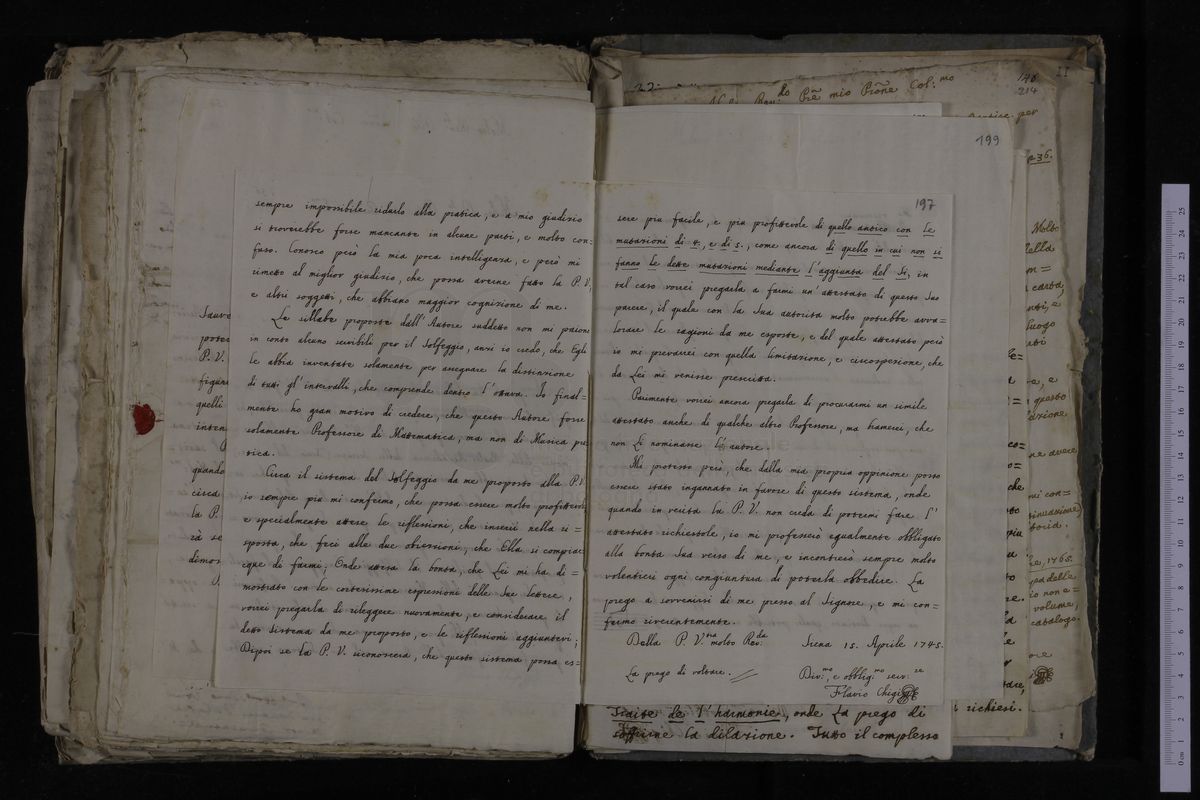 sempre impossibile ridurlo alla pratica, e a mio giudizio
si troverebbe forse mancante in alcune parti, e molto con=
fuso. Conosco però la mia poca intelligenza, e però mi
rimetto al miglior giudizio, che possa averne fatto la P. V.,
e altri soggetti, che abbiano maggior cognizione di me.
Le sillabe proposte dall' Autore suddetto non mi paiono
in conto alcuno servibili per il Solfeggio, anzi io credo, che Egli
le abbia inventate solamente per assegnare la distinzione
di tutti gl' intervalli, che comprende dentro l'ottava. Io final=
mente ho gran motivo di credere, che questo Autore fosse
solamente Professore di Mattematica, ma non di Musica pra
tica.
Circa il sistema del Solfeggio da me proposto alla P. V.
io sempre più mi confermo, che possa essere molto profittevole
e specialmente attese le riflessioni, che inserii nella ri=
sposta, che feci alle due obiezioni, che Ella si compiac
cque di farmi, Onde attesa la bontà, che Lei mi ha di=
mostrato con le cortesissime espressioni delle Sue lettere,
vorrei pregarla di rileggere nuovamente, e considerare il
detto sistema da me proposto, e le riflessioni aggiuntevi;
Dipoi se la P. V. riconoscerà, che questo sistema possa es=
Sauve
poter
P. V.
figura
quelli
inten
quando
circa
la P.
rà se
dimos
197
sere più facile, e più profittevole di quello antico con le
mutazioni di 4., e di 5., come ancora di quello in cui non si
fanno le dette mutazioni mediante l'aggiunta del Si, in
tal caso vorrei pregarla a farmi un' attestato di questo suo
parere, il quale con la Sua autorità molto potrebbe avva=
lorare le ragioni da me esposte, e del quale attestato però
io mi prevarrei con quella limitazione, e circospezione, che
da Lei mi venisse prescritta.
Parimente vorrei ancora pregarla di procurarmi un simile
attestato anche di qualche altro Professore, ma bramerei, che
non Le nominasse l'autore.
Mi protesto però, che dalla mia propria oppinione posso
essere stato ingannato in favore di questo sistema, onde
quando in verità la P. V. non creda di potermi fare l'
attestato richiestole, io mi professerò egualmente obbligato
alla bontà Sua verso di me, e incontrerò sempre molto
volentieri ogni congiuntura di poterla obbedire. La
prego a sovvenirsi di me presso al Signore, e mi con=
fermo riverentemente.
Della P. V.ra molto Rev:da Siena 15. Aprile 1745.
La prego di voltare. Div:mo, e obblig:mo serv:re
Flavio Chigi
Traité de l'harmonie, onde La prego di
soffrirne la dilazione. Tutto il complesso
199
146
214
II
Rev:do Pre mio Prone Col:mo
per
236.
Molto
della
m=
carta,
luogo
e, e
questo
avere
mi con=
toria.
1765.
delle
io non e=
volume,
catalogo.
che
richiesi.
0 cm 1 2 3 4 5 6 7 8 9 10 11 12 13 14 15 16 17 18 19 20 21 22 23 24 25